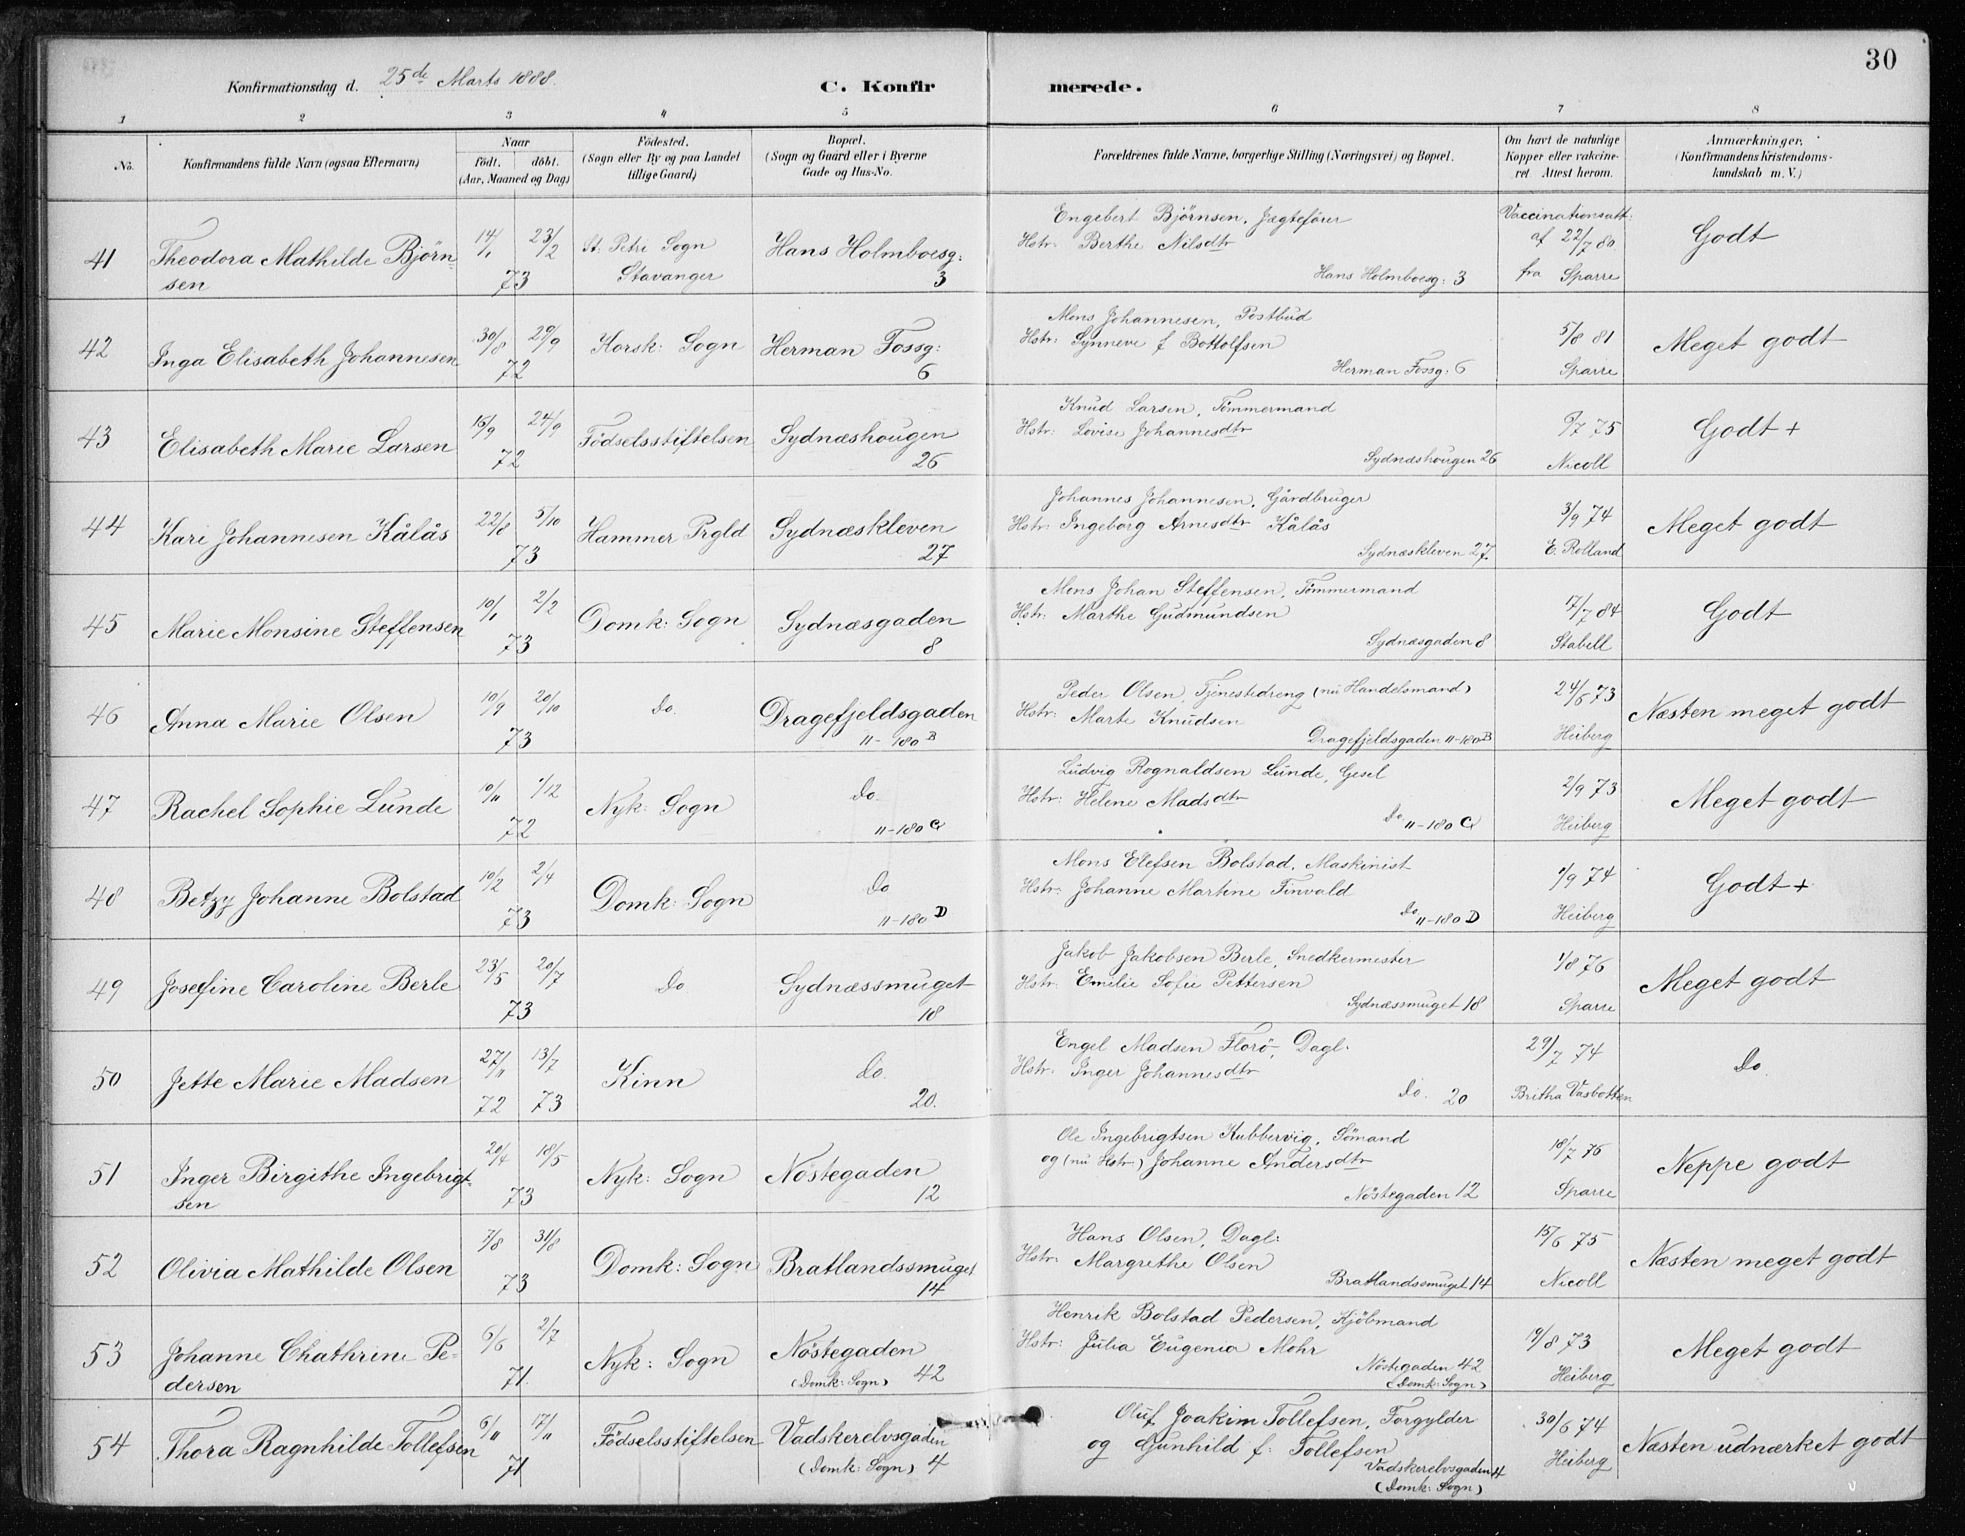 30
Konfirmationsdag d. 25de Marts 1888. C. Konfirmerede.
1 2 3 4 5 6 7 8
No. Konfirmandens fulde Navn (ogsaa Efternavn) Naar födt. döbt. (Aar, Maaned og Dag) Födested. (Sogn eller By og paa Landet tillige Gaard) Bopæl. (Sogn og Gaard eller i Byerne Gade og Hus-No. Forældrenes fulde Navne, borgerlige Stilling (Næringsvei) og Bopæl. Om havt de naturlige Kopper eller vakcineret. Attest herom. Anmærkninger. (Konfirmandens Kristendomskundskab m. V.)
Engebert Björnsen, Jægtefører Vaccinationsatt:
41 Theodora Mathilde Björn- 14/1 23/2 St. Petri Sogn Hans Holmboesg: Hstr: Berthe Nilsdtr af 22/7 80 Godt
sen 73 Stavanger 3 Hans Holmboesg: 3 fra Sparre
Mons Johannesen, Postbud
42 Inga Elisabeth Johannesen 30/8 29/9 Korsk: Sogn Herman Fossg: Hstr: Synneve f Bottolfsen 5/8 81 Meget godt
72 6 Herman Fossg: 6 Sparre
Knud Larsen, Tömmermand
43 Elisabeth Marie Larsen 15/9 24/9 Födselsstiftelsen Sydnæshougen Hstr: Lovise Johannesdtr /7 75 Godt +
72 26 Sydnæshougen 26 Nicoll
Johannes Johannesen, Gårdbruger
44 Kari Johannesen Kålås 22/8 5/10 Hammer Prgld Sydnæskleven Hstr: Ingeborg Arnesdtr Kålås 3/9 74 Meget godt
73 27 Sydnæskleven 27. E. Rolland
Mons Johan Steffensen, Tömmermand
45 Marie Monsine Steffensen 10/1 2/2 Domk: Sogn Sydnæsgaden Hstr: Marthe Gudmundsen 17/7 84 Godt
73 8 Sydnæsgaden 8 Stabell
Peder Olsen, Tjenestedreng (nu Handelsmand)
46 Anna Marie Olsen 10/9 20/10 do. Dragefjeldsgaden Hstr: Marte Knudsen 24/6 73 Næsten meget godt
73 11-180 B Dragefjeldsgaden 11-180B Heiberg
Ludvig Rognaldsen Lunde, Gesel
47 Rachel Sophie Lunde 10/11 1/12 Nyk: Sogn do. Hstr: Helene Madsdtr 2/9 73 Meget godt
72 11-180 C do. 11-180 C Heiberg
Mons Elefsen Bolstad, Maskinist
48 Betzy Johanne Bolstad 10/2 2/4 Domk: Sogn do Hstr: Johanne Martine Finvald 1/9 74 Godt +
73 11-180 D do 11-180 D Heiberg
Jakob Jakobsen Berle, Snedkermester
49 Josefine Caroline Berle 23/5 20/7 do. Sydnæssmuget Hstr: Emilie Sofie Pettersen 1/8 76 Meget godt
73 18 Sydnæssmuget 18 Sparre
Engel Madsen Florö, Dagl:
50 Jette Marie Madsen 27/11 13/7 Kinn do. Hstr: Inger Johannesdtr 29/7 74 do.
72 73 20. do. 20 Britha Vasbotten
Ole Ingebrigtsen Kubbervig, Sömand
51 Inger Birgithe Ingebrigt- 20/4 18/5 Nyk: Sogn Nöstegaden og (nu Hstr) Johanne Andersdtr 18/7 76 Neppe godt
sen 73 12 Nöstegaden 12 Sparre
Hans Olsen, Dagl:
52 Olivia Mathilde Olsen 7/8 31/8 Domk: Sogn Bratlandssmuget Hstr: Margrethe Olsen 15/6 75 Næsten meget godt
73 14 Bratlandssmuget 14 Nicoll
Henrik Bolstad Pedersen, Kjöbmand
53 Johanne Chathrine Pe- 6/6 2/7 Nyk: Sogn Nöstegaden Hstr: Julia Eugenia Mohr /8 73 Meget godt
dersen 71. (Domk: Sogn) 42 Nöstegaden 42 (Domk: Sogn) Heiberg
Oluf Joakim Tollefsen, Forgylder
54 Thora Ragnhilde Tollefsen 6/11 17/11 Födselsstiftelsen Vadskerelvsgaden og Gunhild f: Tollefsen 30/6 74 Næsten udnærket godt
71 (Domk: Sogn) 4 Vadskerelvsgaden 4 Heiberg
(Domk: Sogn)